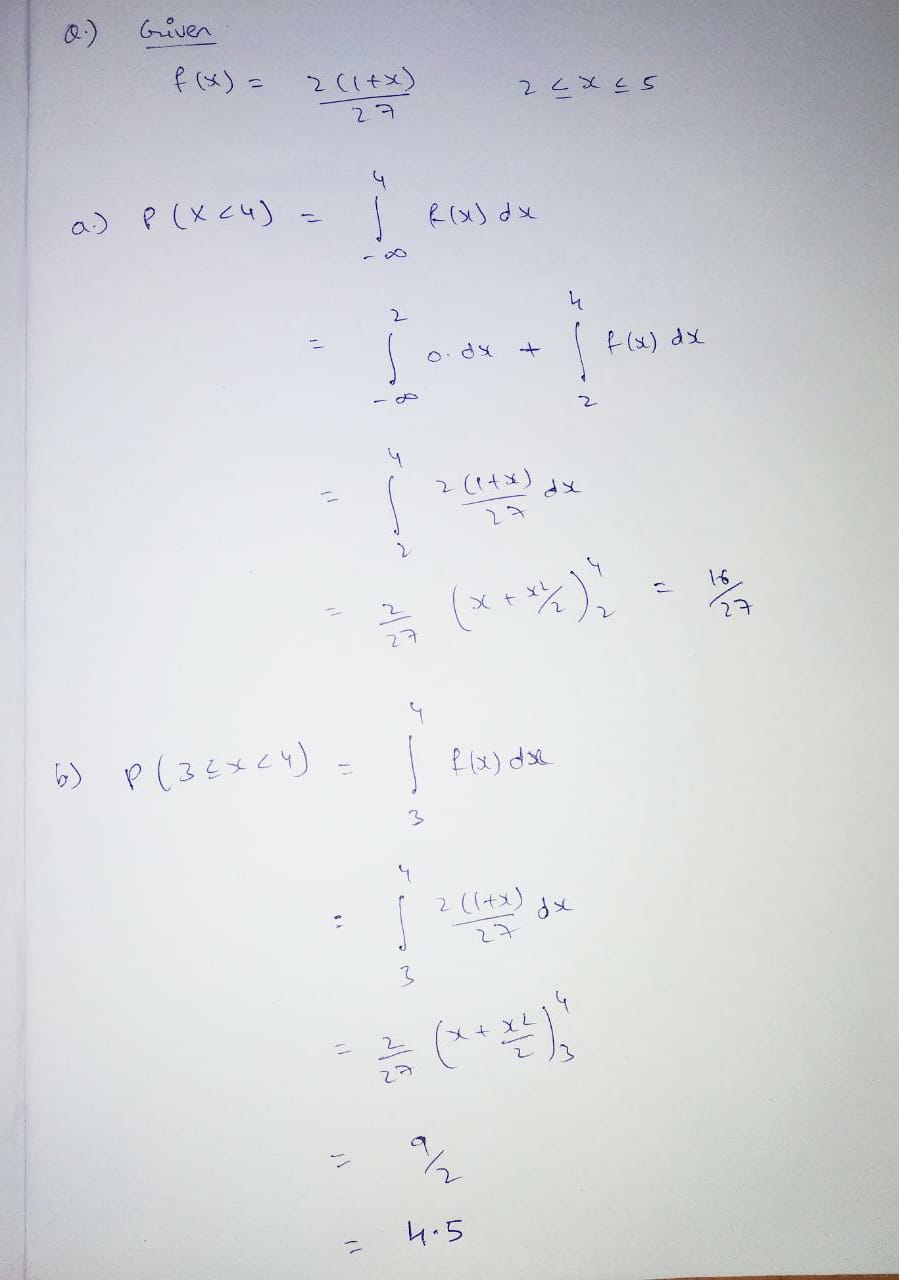 Q.) Given
f(x) = 2(1+x)/27 2 ≤ x ≤ 5
a.) P(X<4) = ∫_{-∞}^{4} f(x) dx
= ∫_{-∞}^{2} 0.dx + ∫_{2}^{4} f(x) dx
= ∫_{2}^{4} 2(1+x)/27 dx
= 2/27 (x + x²/2)_{2}^{4} = 16/27
b) P(3≤x<4) = ∫_{3}^{4} f(x) dx
= ∫_{3}^{4} 2(1+x)/27 dx
= 2/27 (x + x²/2)_{3}^{4}
= 9/2
= 4.5